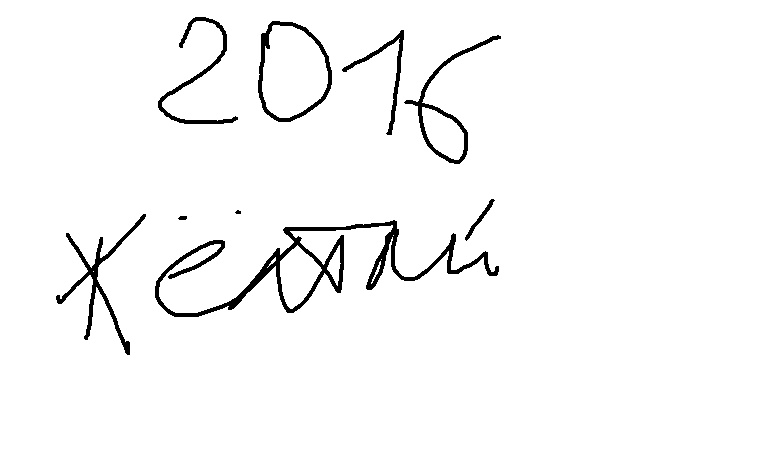 2016
Жёлтый